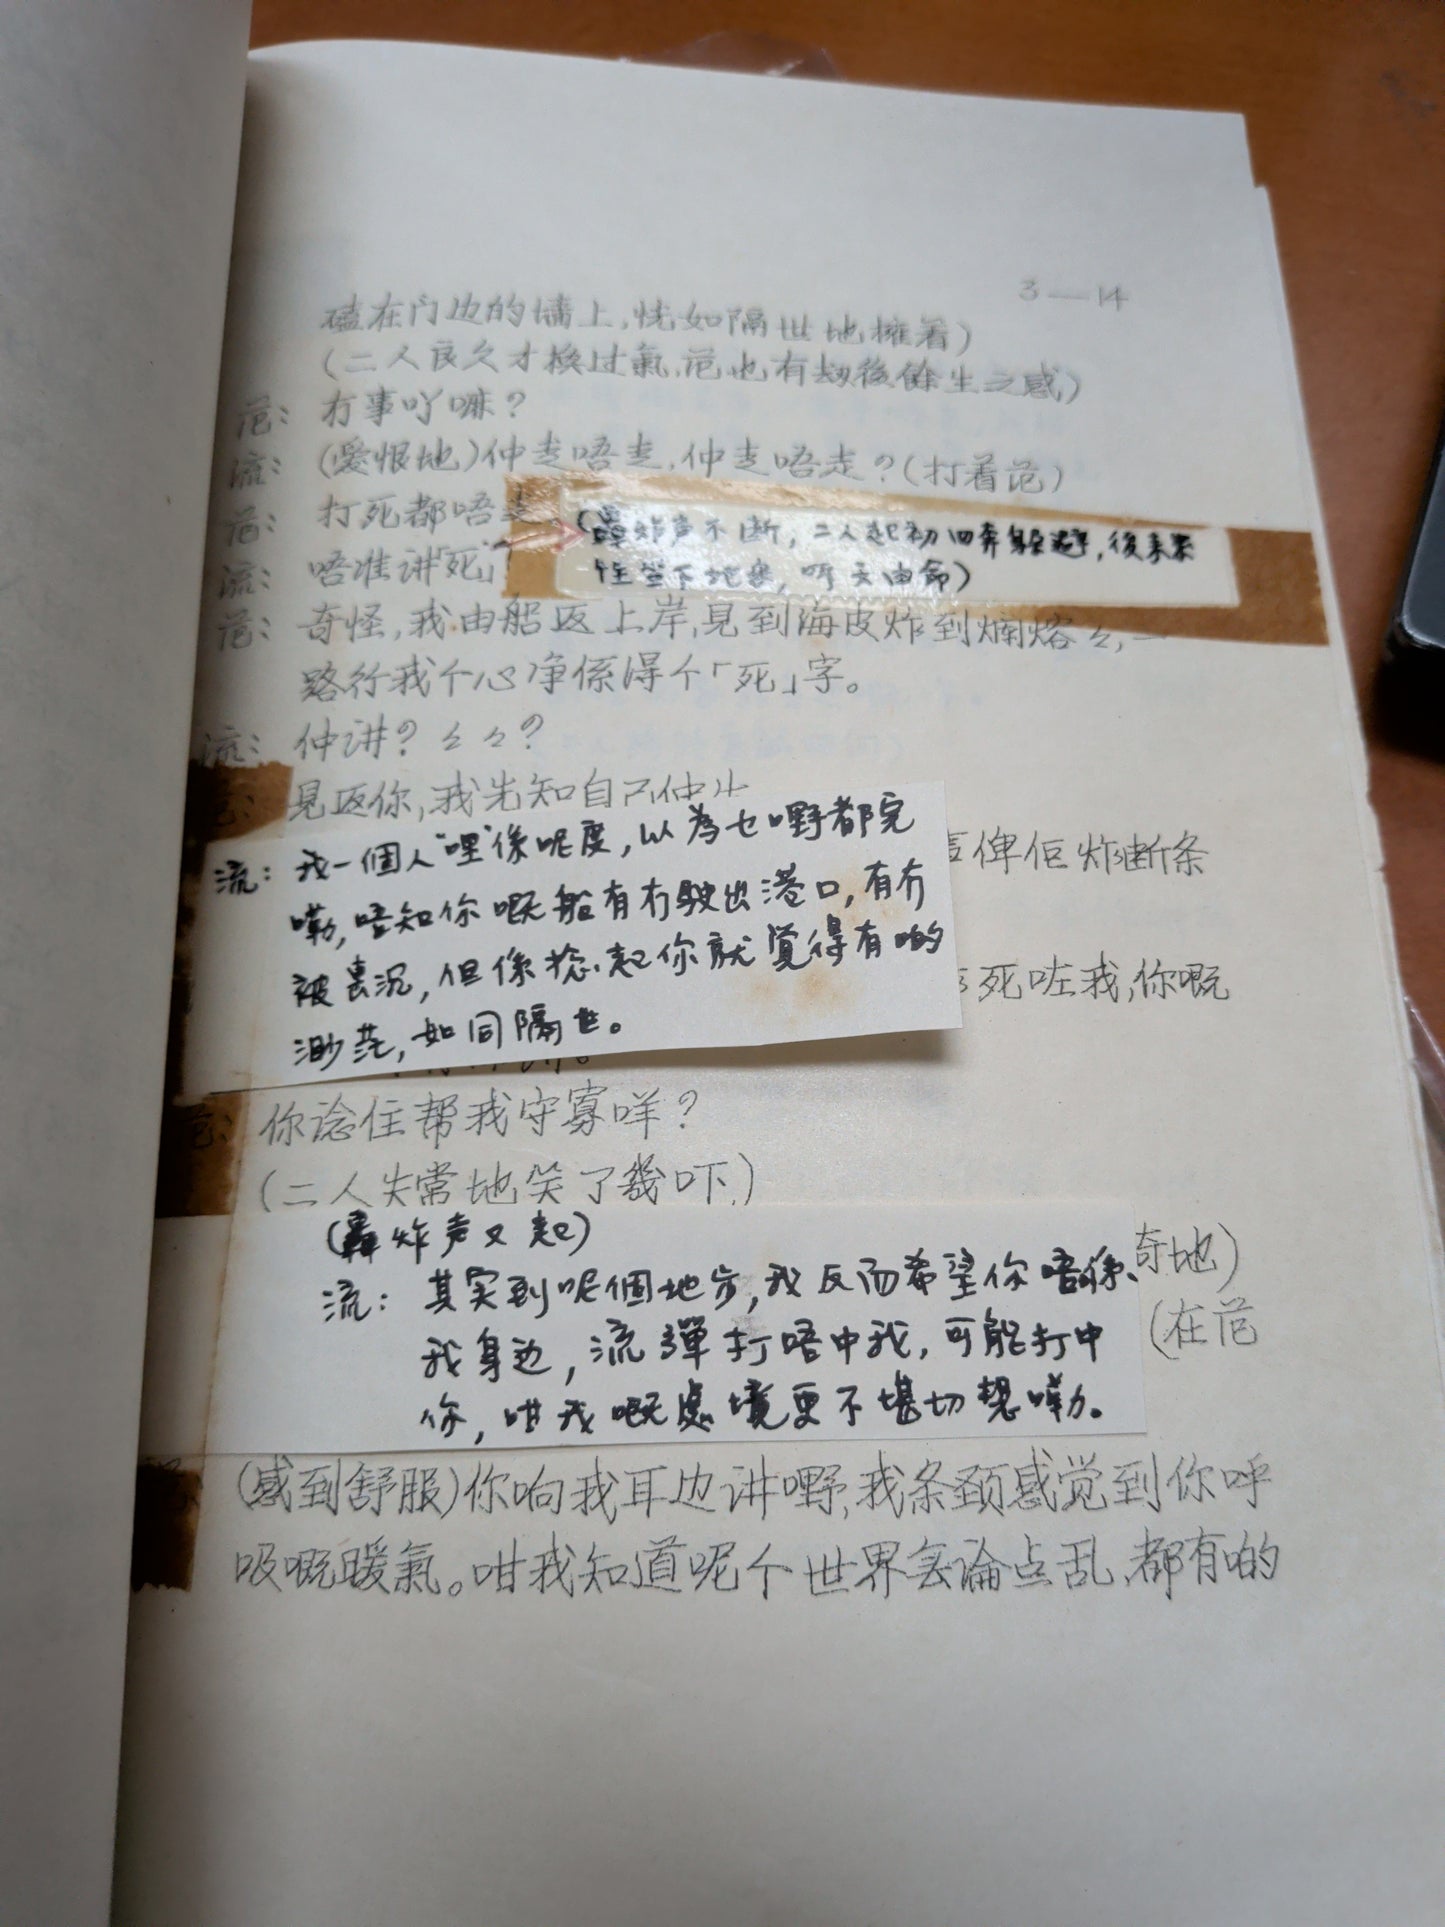 3—14
磕在门边的墙上,恍如隔世地擁着)
(二人良久才換过氣,范也有劫後餘生之感)
范: 冇事吖嘛?
流: (愛恨地)仲走唔走,仲走唔走?(打着范)
范: 打死都唔走
(轟炸声不断,二人起初四奔躲避,後来索
性坐下地来,听天由命)
流: 唔准讲「死」
范: 奇怪,我由船返上岸,見到海皮炸到爛熔々,一
路行我个心净係得个「死」字。
流: 仲讲?々々?
范: 見返你,我先知自己仲
流: 我一個人“哩”係呢度,以為乜嘢都完
嘞,唔知你嘅船有冇駛出港口,有冇
被轟沉,但係捻起你就覺得有啲
渺茫,如同隔世。
俾佢炸断条
死咗我,你嘅
范: 你諗住帮我守寡咩?
(二人失常地笑了幾吓)
(轟炸声又起)
流: 其实到呢個地步,我反而希望你唔係
我身边,流彈打唔中我,可能打中
你,咁我嘅處境更不堪切想嘞。
奇地)
(在范
(感到舒服)你响我耳边讲嘢,我条颈感觉到你呼
吸嘅暖氣。咁我知道呢个世界無論点乱,都有啲